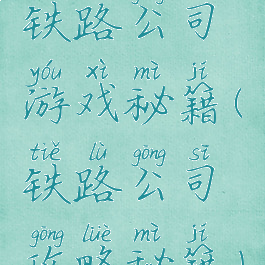 铁路公司
yóu xì mì jí
游戏秘籍(
tiě lù gōng sī
铁路公司
gōng lüè mì jí
攻略秘籍)